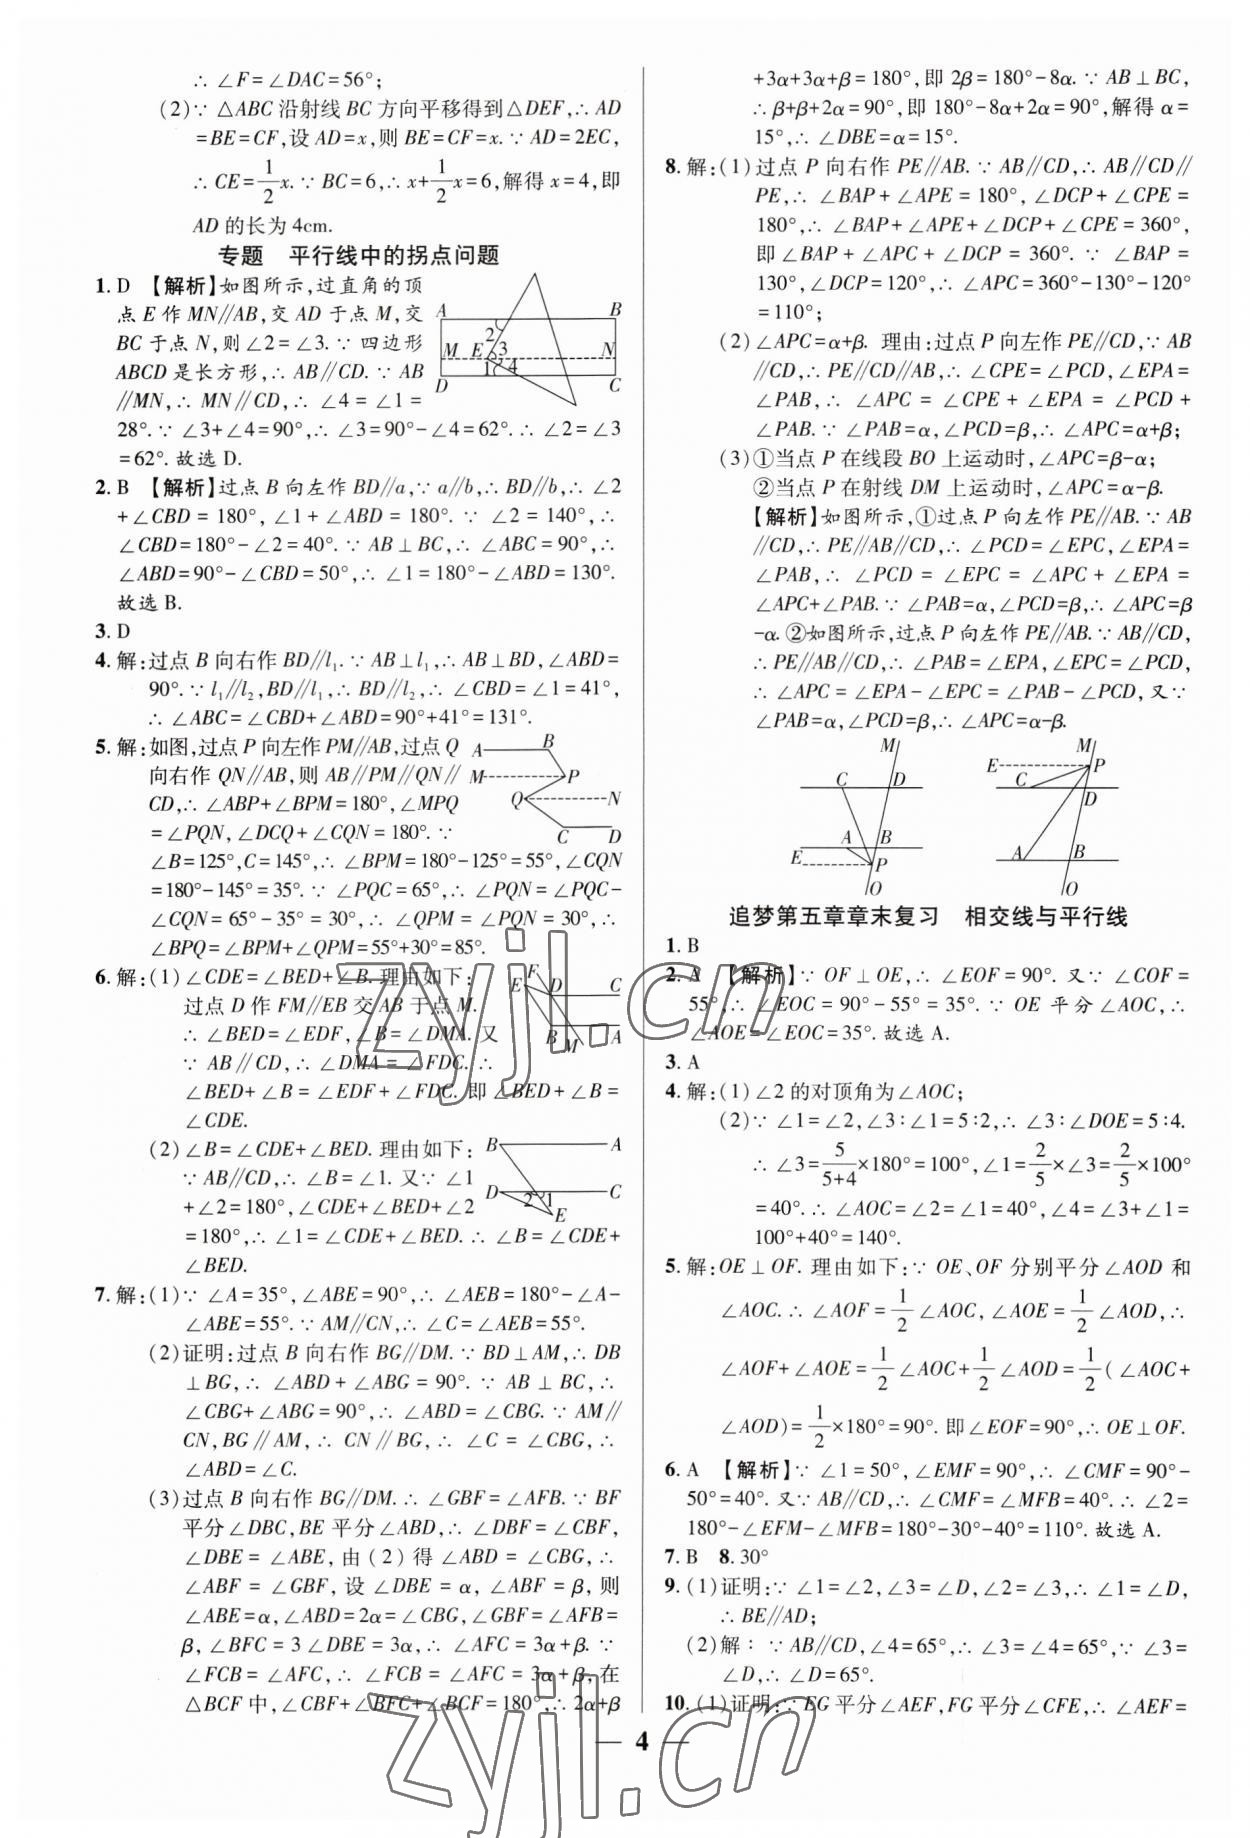 ∴ ∠F=∠DAC=56°;
(2)∵ △ABC 沿射线 BC 方向平移得到△DEF,∴ AD
=BE=CF,设 AD=x,则 BE=CF=x.∵ AD=2EC,
∴ CE=1/2x.∵ BC=6,∴ x+1/2x=6,解得 x=4,即
AD 的长为 4cm.
专题 平行线中的拐点问题
1. D 【解析】如图所示,过直角的顶
点 E 作 MN∥AB,交 AD 于点 M,交
BC 于点 N,则∠2=∠3.∵ 四边形
ABCD 是长方形,∴ AB∥CD.∵ AB
∥MN,∴ MN∥CD,∴ ∠4=∠1=
28°.∵ ∠3+∠4=90°,∴ ∠3=90°-∠4=62°.∴ ∠2=∠3
=62°.故选 D.
A B
2
M E 3 N
1 4
D C
2. B 【解析】过点 B 向左作 BD∥a,∵ a∥b,∴ BD∥b,∴ ∠2
+∠CBD=180°,∠1+∠ABD=180°.∵ ∠2=140°,∴
∠CBD=180°-∠2=40°.∵ AB⊥BC,∴ ∠ABC=90°,∴
∠ABD=90°-∠CBD=50°,∴ ∠1=180°-∠ABD=130°.
故选 B.
3. D
4. 解:过点 B 向右作 BD∥l₁.∵ AB⊥l₁,∴ AB⊥BD,∠ABD=
90°.∵ l₁∥l₂,BD∥l₁,∴ BD∥l₂,∴ ∠CBD=∠1=41°,
∴ ∠ABC=∠CBD+∠ABD=90°+41°=131°.
5. 解:如图,过点 P 向左作 PM∥AB,过点 Q
向右作 QN∥AB,则 AB∥PM∥QN∥
CD,∴ ∠ABP+∠BPM=180°,∠MPQ
=∠PQN,∠DCQ+∠CQN=180°.∵
∠B=125°,C=145°,∴ ∠BPM=180°-125°=55°,∠CQN
=180°-145°=35°.∵ ∠PQC=65°,∴ ∠PQN=∠PQC-
∠CQN=65°-35°=30°,∴ ∠QPM=∠PQN=30°,∴
∠BPQ=∠BPM+∠QPM=55°+30°=85°.
A B
M P
Q N
C D
6. 解:(1)∠CDE=∠BED+∠B.理由如下:
过点 D 作 FM∥EB 交 AB 于点 M.
∴ ∠BED=∠EDF,∠B=∠DMA.又
∵ AB∥CD,∴ ∠DMA=∠FDC.∴
∠BED+∠B=∠EDF+∠FDC.即∠BED+∠B=
∠CDE.
F
E D C
B M A
(2)∠B=∠CDE+∠BED.理由如下:
∵ AB∥CD,∴ ∠B=∠1.又∵ ∠1
+∠2=180°,∠CDE+∠BED+∠2
=180°,∴ ∠1=∠CDE+∠BED.∴ ∠B=∠CDE+
∠BED.
B A
D 2 1 C
E
7. 解:(1)∵ ∠A=35°,∠ABE=90°,∴ ∠AEB=180°-∠A-
∠ABE=55°.∵ AM∥CN,∴ ∠C=∠AEB=55°.
(2)证明:过点 B 向右作 BG∥DM.∵ BD⊥AM,∴ DB
⊥BG,∴ ∠ABD+∠ABG=90°.∵ AB⊥BC,∴
∠CBG+∠ABG=90°,∴ ∠ABD=∠CBG.∵ AM∥
CN,BG∥AM,∴ CN∥BG,∴ ∠C=∠CBG,∴
∠ABD=∠C.
(3)过点 B 向右作 BG∥DM.∴ ∠GBF=∠AFB.∵ BF
平分∠DBC,BE 平分∠ABD,∴ ∠DBF=∠CBF,
∠DBE=∠ABE,由(2)得∠ABD=∠CBG,∴
∠ABF=∠GBF,设∠DBE=α,∠ABF=β,则
∠ABE=α,∠ABD=2α=∠CBG,∠GBF=∠AFB=
β,∠BFC=3∠DBE=3α,∴ ∠AFC=3α+β.∵
∠FCB=∠AFC,∴ ∠FCB=∠AFC=3α+β,在
△BCF 中,∠CBF+∠BFC+∠BCF=180°,∴ 2α+β
+3α+3α+β=180°,即 2β=180°-8α.∵ AB⊥BC,
∴ β+β+2α=90°,即 180°-8α+2α=90°,解得 α=
15°,∴ ∠DBE=α=15°.
8. 解:(1)过点 P 向右作 PE∥AB.∵ AB∥CD,∴ AB∥CD∥
PE,∴ ∠BAP+∠APE=180°,∠DCP+∠CPE=
180°,∴ ∠BAP+∠APE+∠DCP+∠CPE=360°,
即∠BAP+∠APC+∠DCP=360°.∵ ∠BAP=
130°,∠DCP=120°,∴ ∠APC=360°-130°-120°
=110°;
(2)∠APC=α+β. 理由:过点 P 向左作 PE∥CD,∵ AB
∥CD,∴ PE∥CD∥AB,∴ ∠CPE=∠PCD,∠EPA=
∠PAB,∴ ∠APC=∠CPE+∠EPA=∠PCD+
∠PAB.∵ ∠PAB=α,∠PCD=β,∴ ∠APC=α+β;
(3)①当点 P 在线段 BO 上运动时,∠APC=β-α;
②当点 P 在射线 DM 上运动时,∠APC=α-β.
【解析】如图所示,①过点 P 向左作 PE∥AB.∵ AB
∥CD,∴ PE∥AB∥CD,∴ ∠PCD=∠EPC,∠EPA=
∠PAB,∴ ∠PCD=∠EPC=∠APC+∠EPA=
∠APC+∠PAB.∵ ∠PAB=α,∠PCD=β,∴ ∠APC=β
-α.②如图所示,过点 P 向左作 PE∥AB.∵ AB∥CD,
∴ PE∥AB∥CD,∴ ∠PAB=∠EPA,∠EPC=∠PCD,
∴ ∠APC=∠EPA-∠EPC=∠PAB-∠PCD,又∵
∠PAB=α,∠PCD=β,∴ ∠APC=α-β.
M
C D
A B
E P
O
M
E P
C D
A B
O
追梦第五章章末复习 相交线与平行线
1. B
2. A 【解析】∵ OF⊥OE,∴ ∠EOF=90°.又∵ ∠COF=
55°,∴ ∠EOC=90°-55°=35°.∵ OE 平分∠AOC,∴
∠AOE=∠EOC=35°.故选 A.
3. A
4. 解:(1)∠2 的对顶角为∠AOC;
(2)∵ ∠1=∠2,∠3∶∠1=5∶2,∴ ∠3∶∠DOE=5∶4.
∴ ∠3=5/(5+4)×180°=100°,∠1=2/5×∠3=2/5×100°
=40°.∴ ∠AOC=∠2=∠1=40°,∠4=∠3+∠1=
100°+40°=140°.
5. 解:OE⊥OF. 理由如下:∵ OE、OF 分别平分∠AOD 和
∠AOC.∴ ∠AOF=1/2∠AOC,∠AOE=1/2∠AOD,∴
∠AOF+∠AOE=1/2∠AOC+1/2∠AOD=1/2(∠AOC+
∠AOD)=1/2×180°=90°.即∠EOF=90°,∴ OE⊥OF.
6. A 【解析】∵ ∠1=50°,∠EMF=90°,∴ ∠CMF=90°-
50°=40°.又∵ AB∥CD,∴ ∠CMF=∠MFB=40°.∴ ∠2=
180°-∠EFM-∠MFB=180°-30°-40°=110°.故选 A.
7. B 8. 30°
9. (1)证明:∵ ∠1=∠2,∠3=∠D,∠2=∠3,∴ ∠1=∠D,
∴ BE∥AD;
(2)解:∵ AB∥CD,∠4=65°,∴ ∠3=∠4=65°,∵ ∠3=
∠D,∴ ∠D=65°.
10. (1)证明:∵ EG 平分∠AEF,FG 平分∠CFE,∴ ∠AEF=
4
zyjl.cn
zyjl.cn